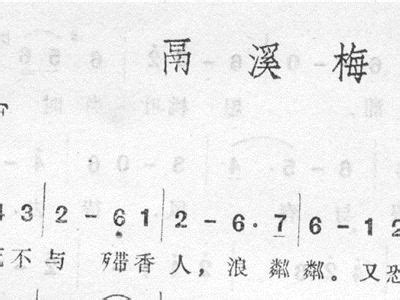 鬲溪梅
3 | 2 – 6 1 | 2 – 6· 7 | 6 – 1 2
不与 殢香人，浪 粼粼。又恐